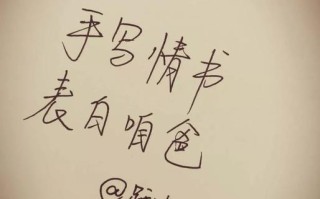 手写情书
表白咱爸